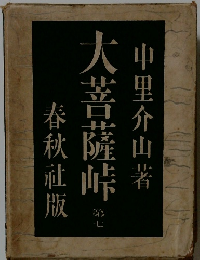 中里介山著
大菩薩峠
第七
春秋社版